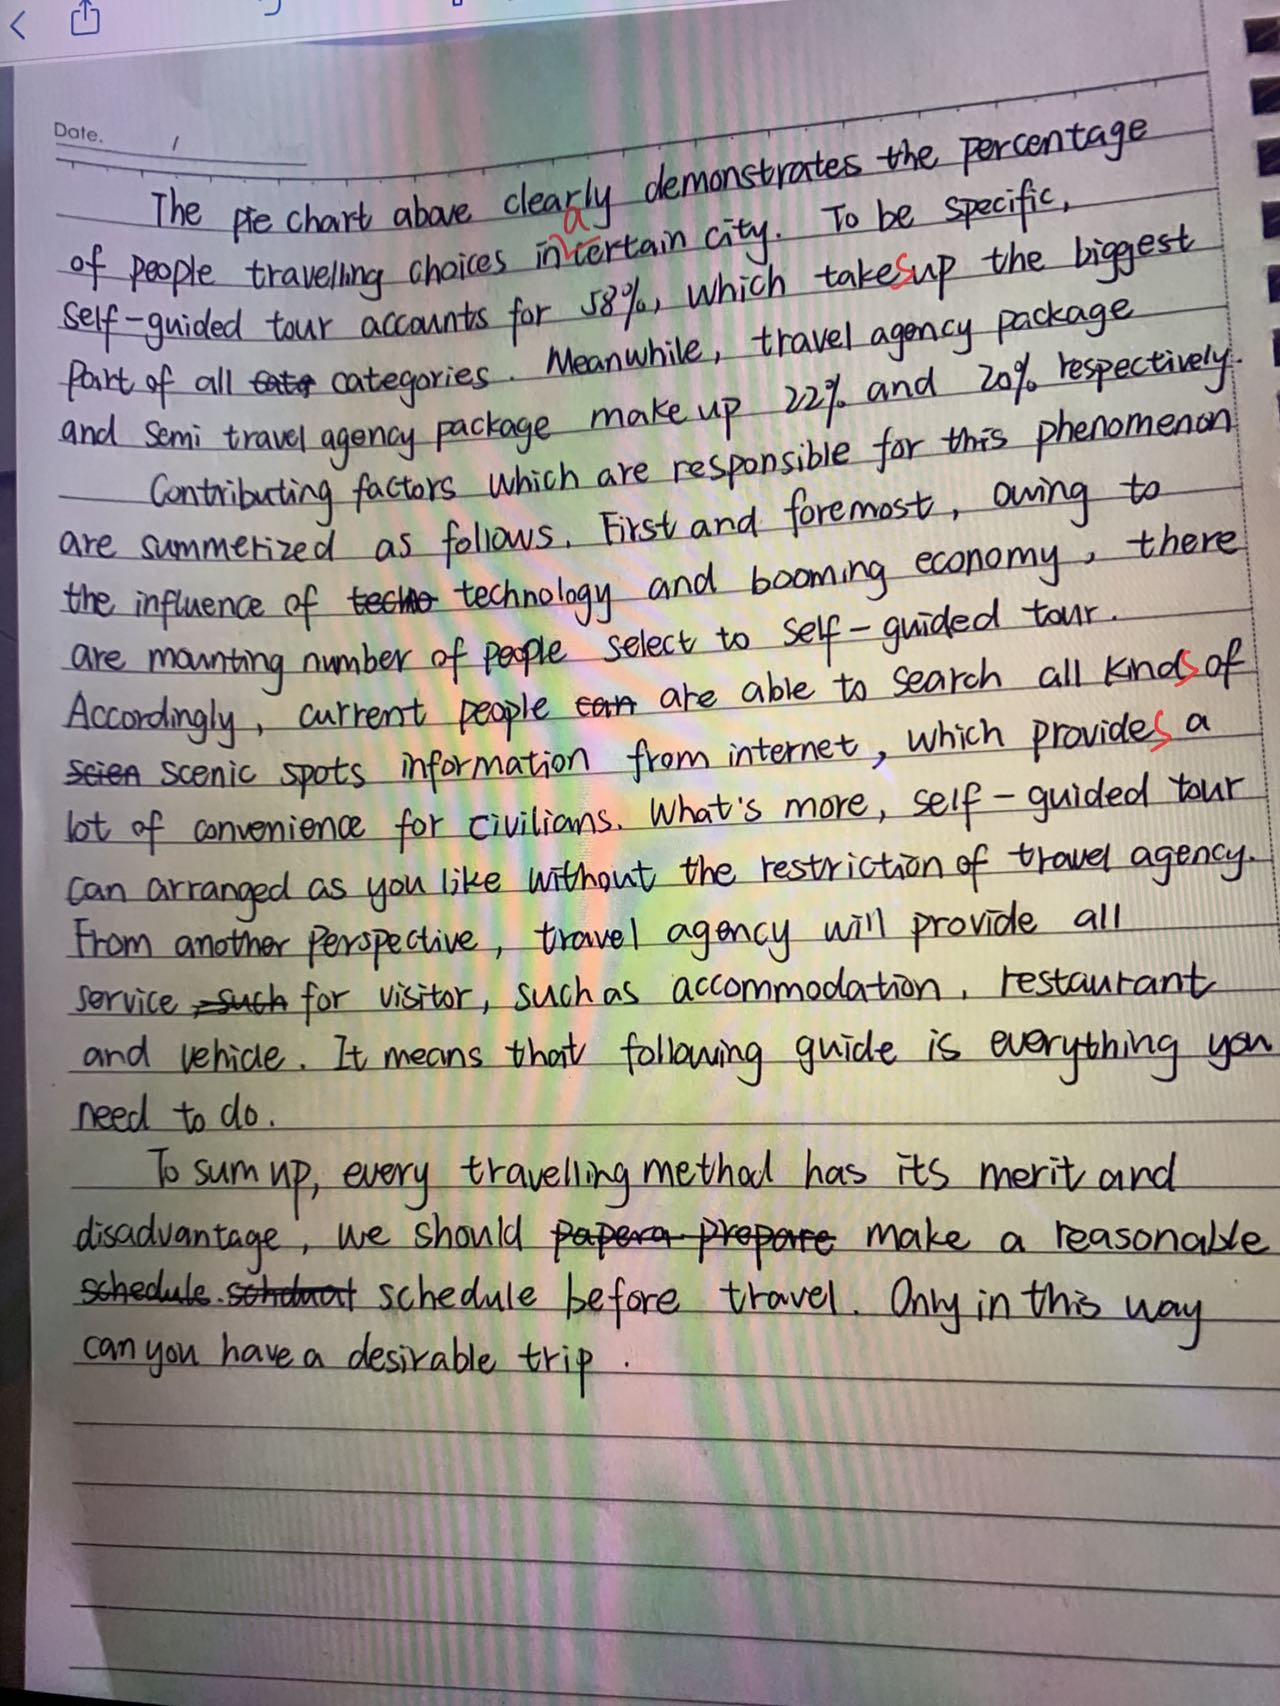 Date.
The pie chart above clearly demonstrates the percentage
of people travelling choices in a certain city. To be specific,
self-guided tour accounts for 58%, which takes up the biggest
part of all cate categories. Meanwhile, travel agency package
and semi travel agency package make up 22% and 20% respectively.
Contributing factors which are responsible for this phenomenon
are summerized as follows. First and foremost, owing to
the influence of techno technology and booming economy, there
are mounting number of people select to self-guided tour.
Accordingly, current people can are able to search all kinds of
scien scenic spots information from internet, which provides a
lot of convenience for civilians. What's more, self-guided tour
can arranged as you like without the restriction of travel agency.
From another perspective, travel agency will provide all
service, such for visitor, such as accommodation, restaurant
and vehicle. It means that following guide is everything you
need to do.
To sum up, every travelling method has its merit and
disadvantage, we should papera prepare make a reasonable
schedule. schedule before travel. Only in this way
can you have a desirable trip.